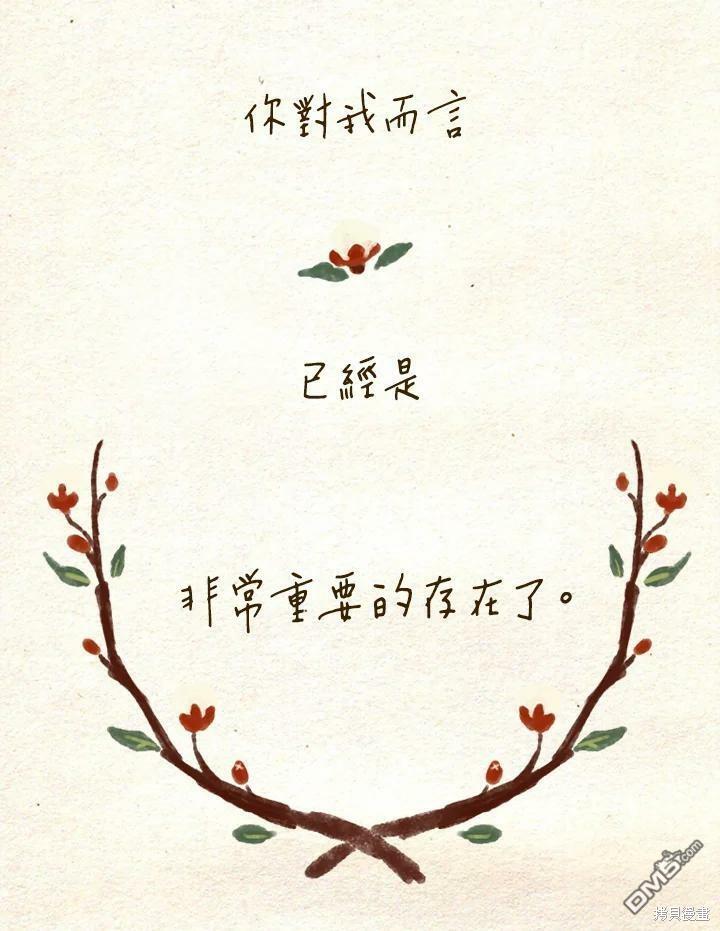 你對我而言
已經是
非常重要的存在了。
DM5.com
拷貝漫畫